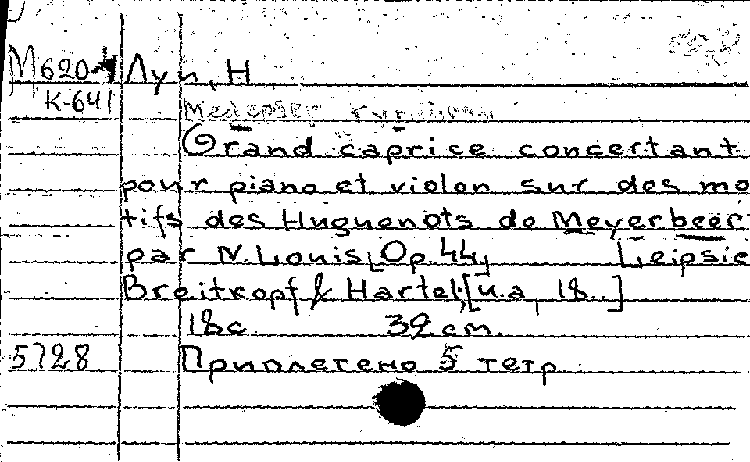 М620-4 Луи, Н
К-641
Мейербер Гугеноты
Grand caprice concertant
pour piano et violon sur des mo
tifs des Huguenots de Meyerbeer
par N. Louis [Op. 44] Leipsic
Breitkopf & Hartel, [u.a, 18..]
18c. 32 cm.
5728 Приплетено 5 тетр